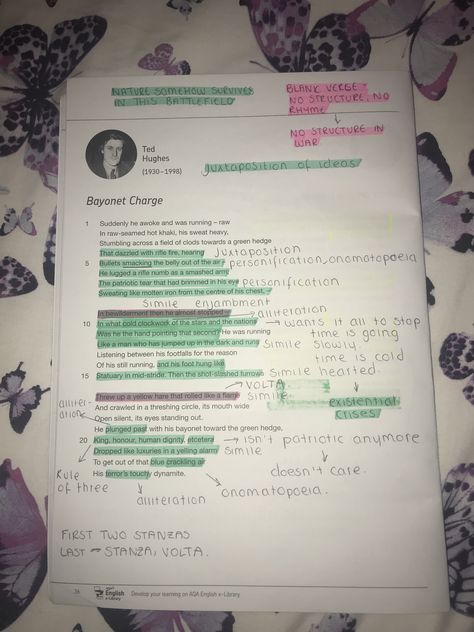 NATURE SOMEHOW SURVIVES
IN THIS BATTLEFIELD
BLANK VERGE -
NO STRUCTURE, NO
RHYME
NO STRUCTURE IN
WAR
juxtaposition of ideas
Ted
Hughes
(1930–1998)
Bayonet Charge
1 Suddenly he awoke and was running – raw
In raw-seamed hot khaki, his sweat heavy,
Stumbling across a field of clods towards a green hedge
That dazzled with rifle fire, hearing juxtaposition
5 Bullets smacking the belly out of the air – personification, onomatopoeia
He lugged a rifle numb as a smashed arm;
The patriotic tear that had brimmed in his eye personification
Sweating like molten iron from the centre of his chest, –
Simile enjambment
In bewilderment then he almost stopped – alliteration
10 In what cold clockwork of the stars and the nations → wants it all to stop
Was he the hand pointing that second? He was running time is going
Like a man who has jumped up in the dark and runs Simile slowly.
Listening between his footfalls for the reason time is cold
Of his still running, and his foot hung like hearted.
15 Statuary in mid-stride. Then the shot-slashed furrows Simile
VOLTA
Threw up a yellow hare that rolled like a flame Simile
alliter-
ation
And crawled in a threshing circle, its mouth wide
Open silent, its eyes standing out.
existential
crises
He plunged past with his bayonet toward the green hedge,
20 King, honour, human dignity, etcetera → isn't patriotic anymore
Dropped like luxuries in a yelling alarm Simile
To get out of that blue crackling air doesn't care.
His terror's touchy dynamite.
Rule
of three
alliteration
onomatopoeia.
FIRST TWO STANZAS
LAST - STANZA, VOLTA.
English
e-Library
Develop your learning on AQA English e-Library